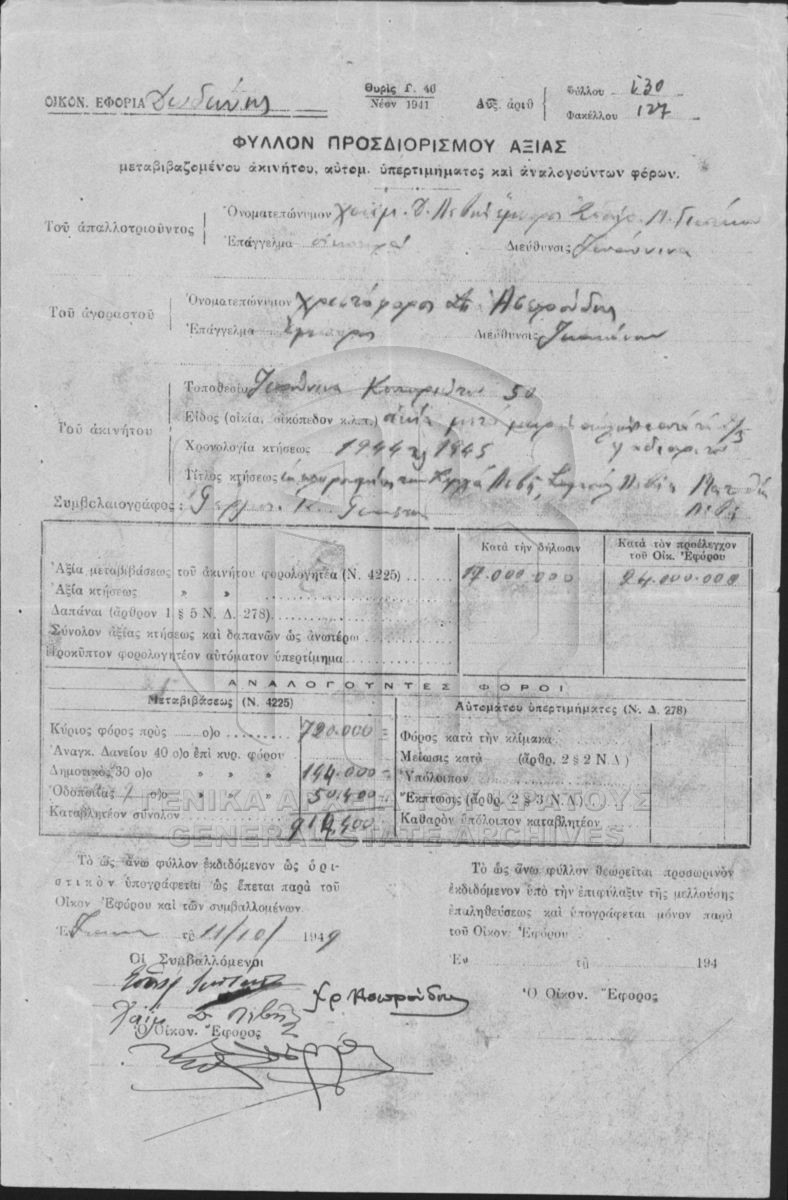 ΟΙΚΟΝ. ΕΦΟΡΙΑ Δωδώνης
Θυρὶς Γ. 40
Νέον 1941
Αὐξ. ἀριθ
Φύλλου 130
Φακέλλου 127
ΦΥΛΛΟΝ ΠΡΟΣΔΙΟΡΙΣΜΟΥ ΑΞΙΑΣ
μεταβιβαζομένου ἀκινήτου, αὐτομ. ὑπερτιμήματος καὶ ἀναλογούντων φόρων.
Τοῦ ἀπαλλοτριοῦντος
Ὀνοματεπώνυμον Χαϊμ. Δ. Λεβῆς
Ἐπάγγελμα Διεύθυνσις Ἰωάννινα
Τοῦ ἀγοραστοῦ
Ὀνοματεπώνυμον Χριστόφορος Ἀσπρούδης
Ἐπάγγελμα ἔμπορος Διεύθυνσις Ἰωάννινα
Τοῦ ἀκινήτου
Τοποθεσία Ἰωάννινα 50
Εἶδος (οἰκία, οἰκόπεδον κ.λ.π.) οἰκία
Χρονολογία κτήσεως 1944 1945
Τίτλος κτήσεως
Συμβολαιογράφος :
Κατὰ τὴν δήλωσιν
Κατὰ τὸν προέλεγχον τοῦ Οἰκ. Ἐφόρου
Ἀξία μεταβιβάσεως τοῦ ἀκινήτου φορολογητέα (Ν. 4225) 17.000.000 24.000.000
Ἀξία κτήσεως » »
Δαπάναι (ἄρθρον 1 § 5 Ν. Δ. 278)
Σύνολον ἀξίας κτήσεως καὶ δαπανῶν ὡς ἀνωτέρω
Προκῦπτον φορολογητέον αὐτόματον ὑπερτίμημα
ΑΝΑΛΟΓΟΥΝΤΕΣ ΦΟΡΟΙ
Μεταβιβάσεως (Ν. 4225)
Κύριος φόρος πρὸς ο)ο 720.000
Ἀναγκ. Δανείου 40 ο)ο ἐπὶ κυρ. φόρου
Δημοτικὸς 30 ο)ο » » » 144.000
Ὁδοποιίας 7 ο)ο » » » 50.400
Καταβλητέον σύνολον 914.400
Αὐτομάτου ὑπερτιμήματος (Ν. Δ. 278)
Φόρος κατὰ τὴν κλίμακα
Μείωσις κατὰ (ἄρθρ. 2 § 2 Ν.Δ)
Ὑπόλοιπον
Ἔκπτωσις (ἄρθρ. 2 § 3 Ν.Δ.)
Καθαρὸν ὑπόλοιπον καταβλητέον
ΓΕΝΙΚΑ ΑΡΧΕΙΑ ΤΟΥ ΚΡΑΤΟΥΣ
GENERAL STATE ARCHIVES
Τὸ ὡς ἄνω φύλλον ἐκδιδόμενον ὡς ὁρι-
στικὸν ὑπογράφεται ὡς ἕπεται παρὰ τοῦ
Οἰκον Ἐφόρου καὶ τῶν συμβαλλομένων.
Ἐν τῇ 11/10/ 1949
Οἱ Συμβαλλόμενοι
Χρ Ἀσπρούδης
Χαΐμ Δ. Λεβῆς
Ὁ Οἰκον. Ἔφορος
Τὸ ὡς ἄνω φύλλον θεωρεῖται προσωρινὸν
ἐκδιδόμενον ὑπὸ τὴν ἐπιφύλαξιν τῆς μελλούσης
ἐπαληθεύσεως καὶ ὑπογράφεται μόνον παρὰ
τοῦ Οἰκον. Ἐφόρου
Ἐν τῇ 194
Ὁ Οἰκον. Ἔφορος